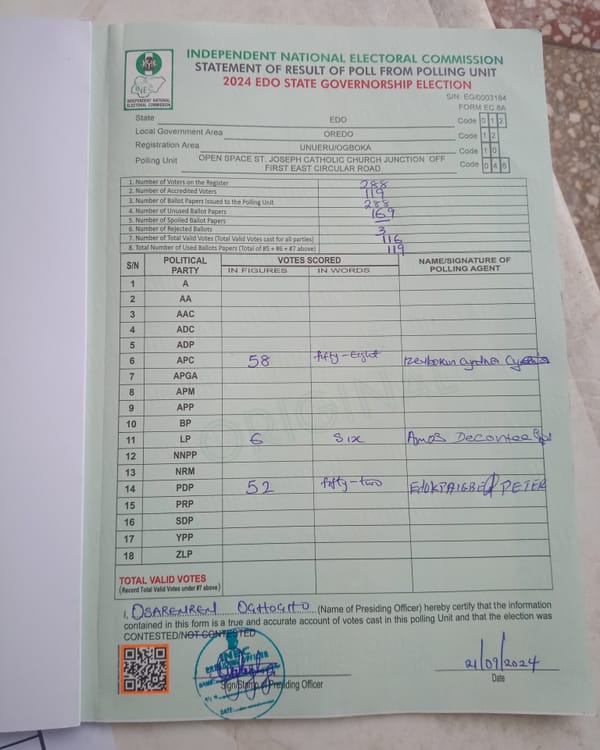 INDEPENDENT NATIONAL ELECTORAL COMMISSION
STATEMENT OF RESULT OF POLL FROM POLLING UNIT
2024 EDO STATE GOVERNORSHIP ELECTION
INEC
INDEPENDENT NATIONAL ELECTORAL COMMISSION
S/N: EG/0003184
FORM EC 8A
State EDO Code 0 1 2
Local Government Area OREDO Code 1 2
Registration Area UNUERU/OGBOKA Code 1 0
Polling Unit OPEN SPACE ST. JOSEPH CATHOLIC CHURCH JUNCTION OFF FIRST EAST CIRCULAR ROAD Code 0 4 6
1. Number of Voters on the Register 288
2. Number of Accredited Voters 119
3. Number of Ballot Papers Issued to the Polling Unit 288
4. Number of Unused Ballot Papers 169
5. Number of Spoiled Ballot Papers —
6. Number of Rejected Ballots 3
7. Number of Total Valid Votes (Total Valid Votes cast for all parties) 116
8. Total Number of Used Ballots Papers (Total of #5 + #6 + #7 above) 119
S/N POLITICAL PARTY VOTES SCORED NAME/SIGNATURE OF POLLING AGENT
IN FIGURES IN WORDS
1 A
2 AA
3 AAC
4 ADC
5 ADP
6 APC 58 fifty-Eight
7 APGA
8 APM
9 APP
10 BP
11 LP 6 Six Amos
12 NNPP
13 NRM
14 PDP 52 fifty-two PETER
15 PRP
16 SDP
17 YPP
18 ZLP
ORIGINAL
TOTAL VALID VOTES
(Record Total Valid Votes under #7 above)
I, OSARENREN OGHOGHO (Name of Presiding Officer) hereby certify that the information
contained in this form is a true and accurate account of votes cast in this polling Unit and that the election was
CONTESTED/NOT CONTESTED
INEC
PRESIDING OFFICER
NAME:
DATE:
Sign/Stamp of Presiding Officer
21/09/2024
Date